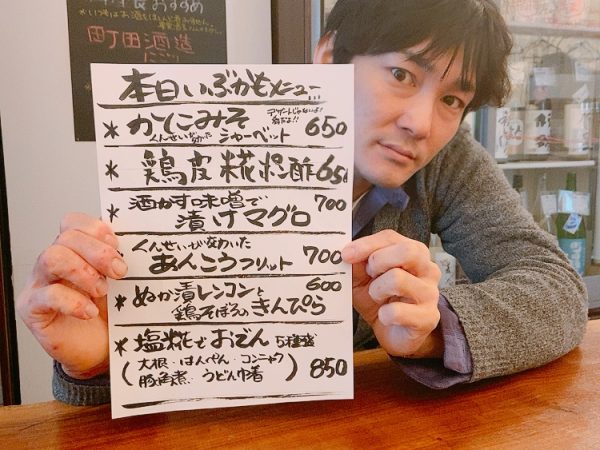 おすすめ
町田酒造
本日いぶかもメニュー
デザートじゃないよ!
* かにみそ
くんせい
シャーベット 650
* 鶏皮糀ポン酢 650
酒かす味噌で 700
* 漬けマグロ
くんせいが交わいた
あんこうフリット 700
* ぬか漬レンコンと 600
鶏そぼろのきんぴら
* 塩糀でおでん 5種盛
(大根・はんぺん・コンニャク
豚角煮・うどん巾着) 850